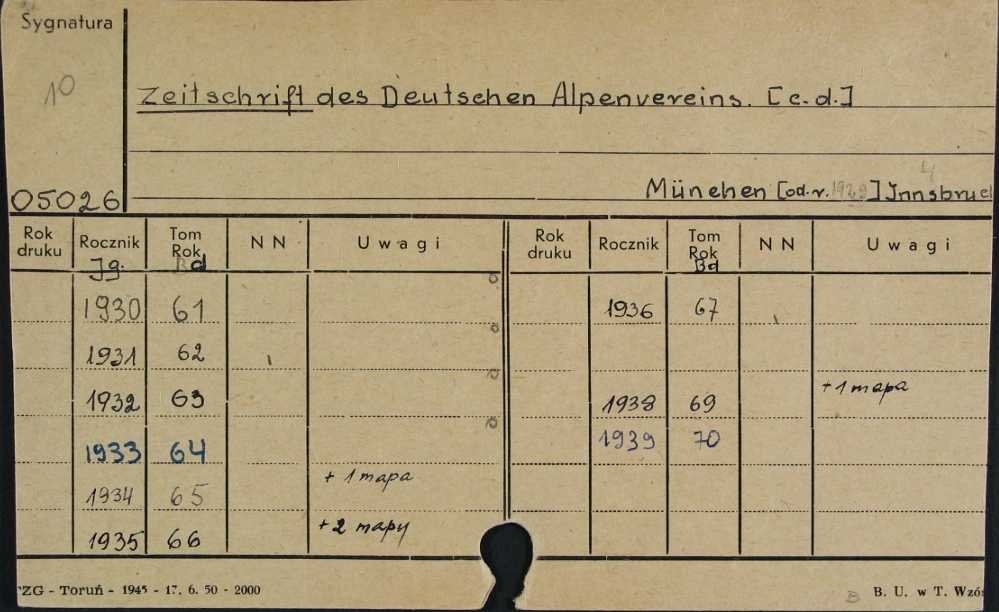 Sygnatura
10
Zeitschrift des Deutschen Alpenvereins. [c.d.]
05026
4
München [od.r. 1929] Innsbruc
Rok druku Rocznik Tom Rok N N Uwagi Rok druku Rocznik Tom Rok N N Uwagi
Jg. Bd Bd
1930 61 1936 67
1931 62
+ 1 mapa
1932 63 1938 69
1933 64 1939 70
+ 1 mapa
1934 65
+ 2 mapy
1935 66
ZG - Toruń - 1945 - 17. 6. 50 - 2000 B. U. w T. Wzó